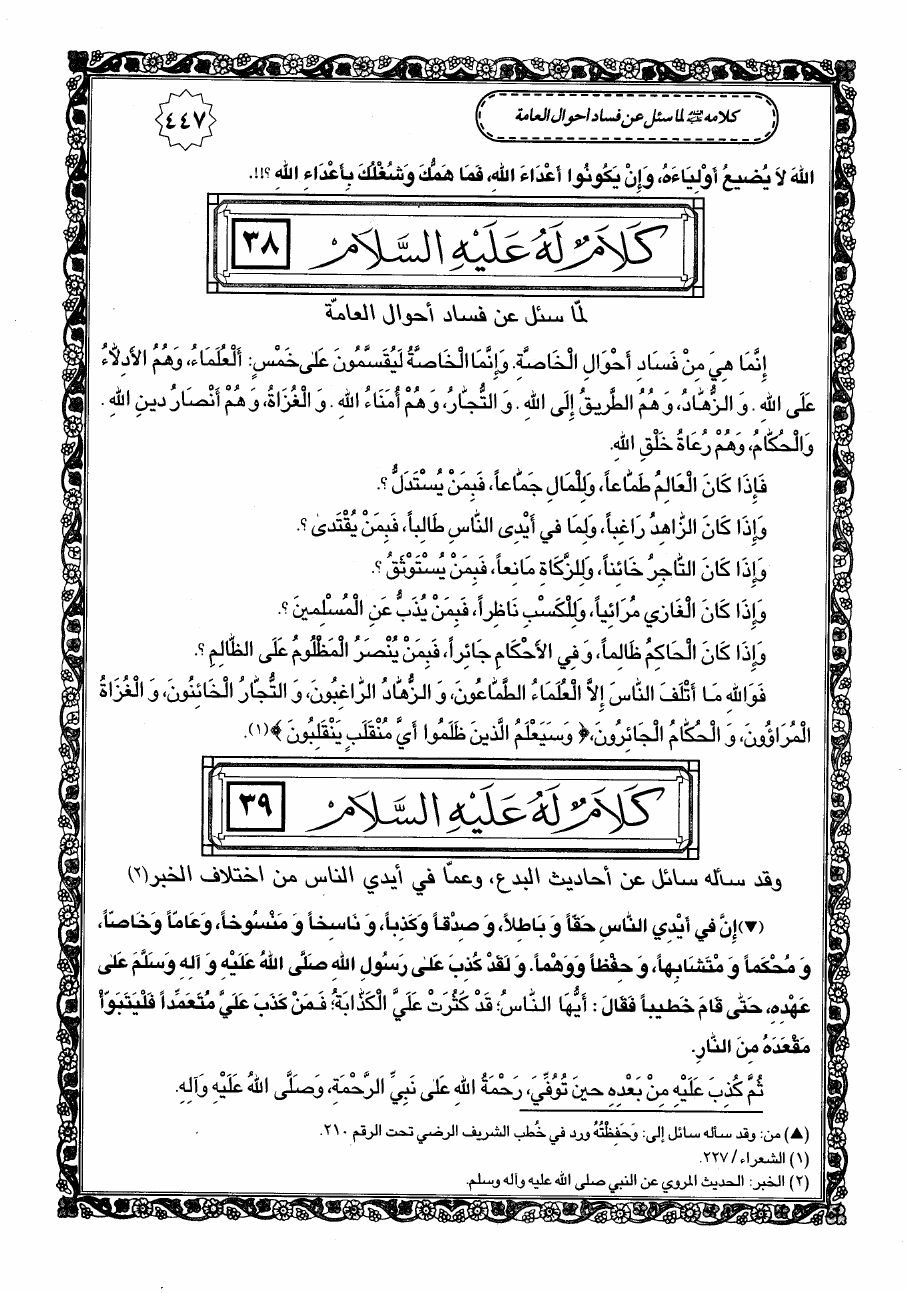 كلامه ﷺ لما سئل عن فساد احوال العامة
٤٤٧
اللهَ لاَ يُضيعُ أَوْلِيَاءَهُ، وَإِنْ يَكُونُوا أَعْدَاءَ اللهِ، فَمَا هَمُّكَ وَشُغْلُكَ بِأَعْدَاءِ اللهِ ؟!!.
كَلاَمٌ لَهُ عَلَيْهِ السَّلاَمُ
٣٨
لمّا سئل عن فساد أحوال العامّة
إِنَّمَا هِيَ مِنْ فَسَادِ أَحْوَالِ الْخَاصَّةِ. وَإِنَّمَا الْخَاصَّةُ لَيُقَسَّمُونَ عَلىٰ خَمْسٍ: أَلْعُلَمَاءُ، وَهُمُ الأَدِلاَّءُ
عَلَى اللهِ. وَ الزُّهَّادُ، وَ هُمُ الطَّريقُ إِلَى اللهِ. وَ التُّجَّارُ، وَ هُمْ أُمَنَاءُ اللهِ. وَ الْغُزَاةُ، وَ هُمْ أَنْصَارُ دينِ اللهِ.
وَالْحُكَّامُ، وَهُمْ رُعَاةُ خَلْقِ اللهِ.
فَإِذَا كَانَ الْعَالِمُ طَمَّاعاً، وَلِلْمَالِ جَمَّاعاً، فَبِمَنْ يُسْتَدَلُّ ؟.
وَإِذَا كَانَ الزَّاهِدُ رَاغِباً، وَلِمَا في أَيْدِى النَّاسِ طَالِباً، فَبِمَنْ يُقْتَدىٰ ؟.
وَإِذَا كَانَ التَّاجِرُ خَائِناً، وَلِلزَّكَاةِ مَانِعاً، فَبِمَنْ يُسْتَوْثَقُ ؟.
وَإِذَا كَانَ الْغَازي مُرَائِياً، وَلِلْكَسْبِ نَاظِراً، فَبِمَنْ يُذَبُّ عَنِ الْمُسْلِمينَ ؟.
وَإِذَا كَانَ الْحَاكِمُ ظَالِماً، وَفِي الأَحْكَامِ جَائِراً، فَبِمَنْ يُنْصَرُ الْمَظْلُومُ عَلَى الظَّالِمِ ؟.
فَوَاللهِ مَا أَتْلَفَ النَّاسَ إِلاَّ الْعُلَمَاءُ الطَّمَّاعُونَ، وَ الزُّهَّادُ الرَّاغِبُونَ، وَ التُّجَّارُ الْخَائِنُونَ، وَ الْغُزَاةُ
الْمُرَاؤُونَ، وَ الْحُكَّامُ الْجَائِرُونَ، ﴿ وَسَيَعْلَمُ الَّذينَ ظَلَمُوا أَيَّ مُنْقَلَبٍ يَنْقَلِبُونَ ﴾(١).
كَلاَمٌ لَهُ عَلَيْهِ السَّلاَمُ
٣٩
وقد سأله سائل عن أحاديث البدع، وعمّا في أيدي الناس من اختلاف الخبر(٢)
(▼) إِنَّ في أَيْدِي النَّاسِ حَقّاً وَ بَاطِلاً، وَ صِدْقاً وَكَذِباً، وَ نَاسِخاً وَ مَنْسُوخاً، وَعَامّاً وَخَاصّاً،
وَ مُحْكَماً وَ مُتَشَابِهاً، وَ حِفْظاً وَوَهْماً. وَ لَقَدْ كُذِبَ عَلىٰ رَسُولِ اللهِ صَلَّى اللهُ عَلَيْهِ وَ آلِهِ وَسَلَّمَ عَلىٰ
عَهْدِهِ، حَتّىٰ قَامَ خَطيباً فَقَالَ : أَيُّهَا النَّاسُ؛ قَدْ كَثُرَتْ عَلَيَّ الْكَذَّابَةُ؛ فَمَنْ كَذَبَ عَلَيَّ مُتَعَمِّداً فَلْيَتَبَوَّأْ
مَقْعَدَهُ مِنَ النَّارِ.
ثُمَّ كُذِبَ عَلَيْهِ مِنْ بَعْدِهِ حينَ تُوُفِّيَ، رَحْمَةُ اللهِ عَلىٰ نَبِيِّ الرَّحْمَةِ، وَصَلَّى اللهُ عَلَيْهِ وَآلِهِ.
(▲) من: وقد سأله سائل إلى: وَحَفِظْتُهُ ورد في خُطب الشريف الرضي تحت الرقم ٢١٠.
(١) الشعراء / ٢٢٧.
(٢) الخبر: الحديث المروي عن النبي صلى الله عليه وآله وسلم.